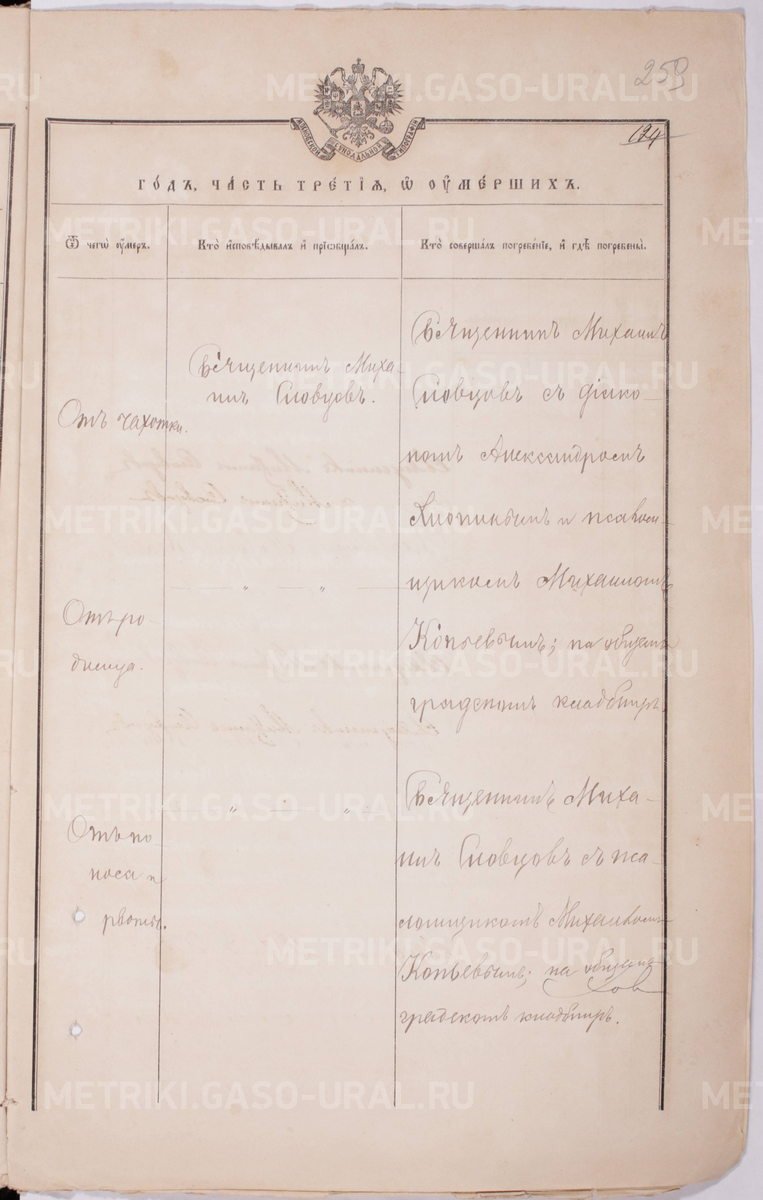 METRIKI.GASO-URAL.RU
259
МОСКОВСКОЙ СѴНОДАЛЬНОЙ ТИПОГРАФІИ
194
ГОДЪ, ЧАСТЬ ТРЕТІЯ, Ѿ ОУМЕРШИХЪ.
Ѿ чегѡ оумеръ.
Кто исповѣдывалъ и пріобщалъ.
Кто совершалъ погребеніе, и гдѣ погребены.
Отъ чахотки.
Священникъ Миха-
илъ Словцовъ.
Священникъ Михаилъ
Словцовъ съ діако-
номъ Александромъ
и псалом-
щикомъ Михаиломъ
Копьевымъ; на общемъ
градскомъ кладбищѣ
Отъ ро-
димца.
" "
Отъ по-
носа и
рвоты.
" "
Священникъ Миха-
илъ Словцовъ съ пса-
ломщикомъ Михаиломъ
Копьевымъ; на общемъ
градскомъ кладбищѣ.